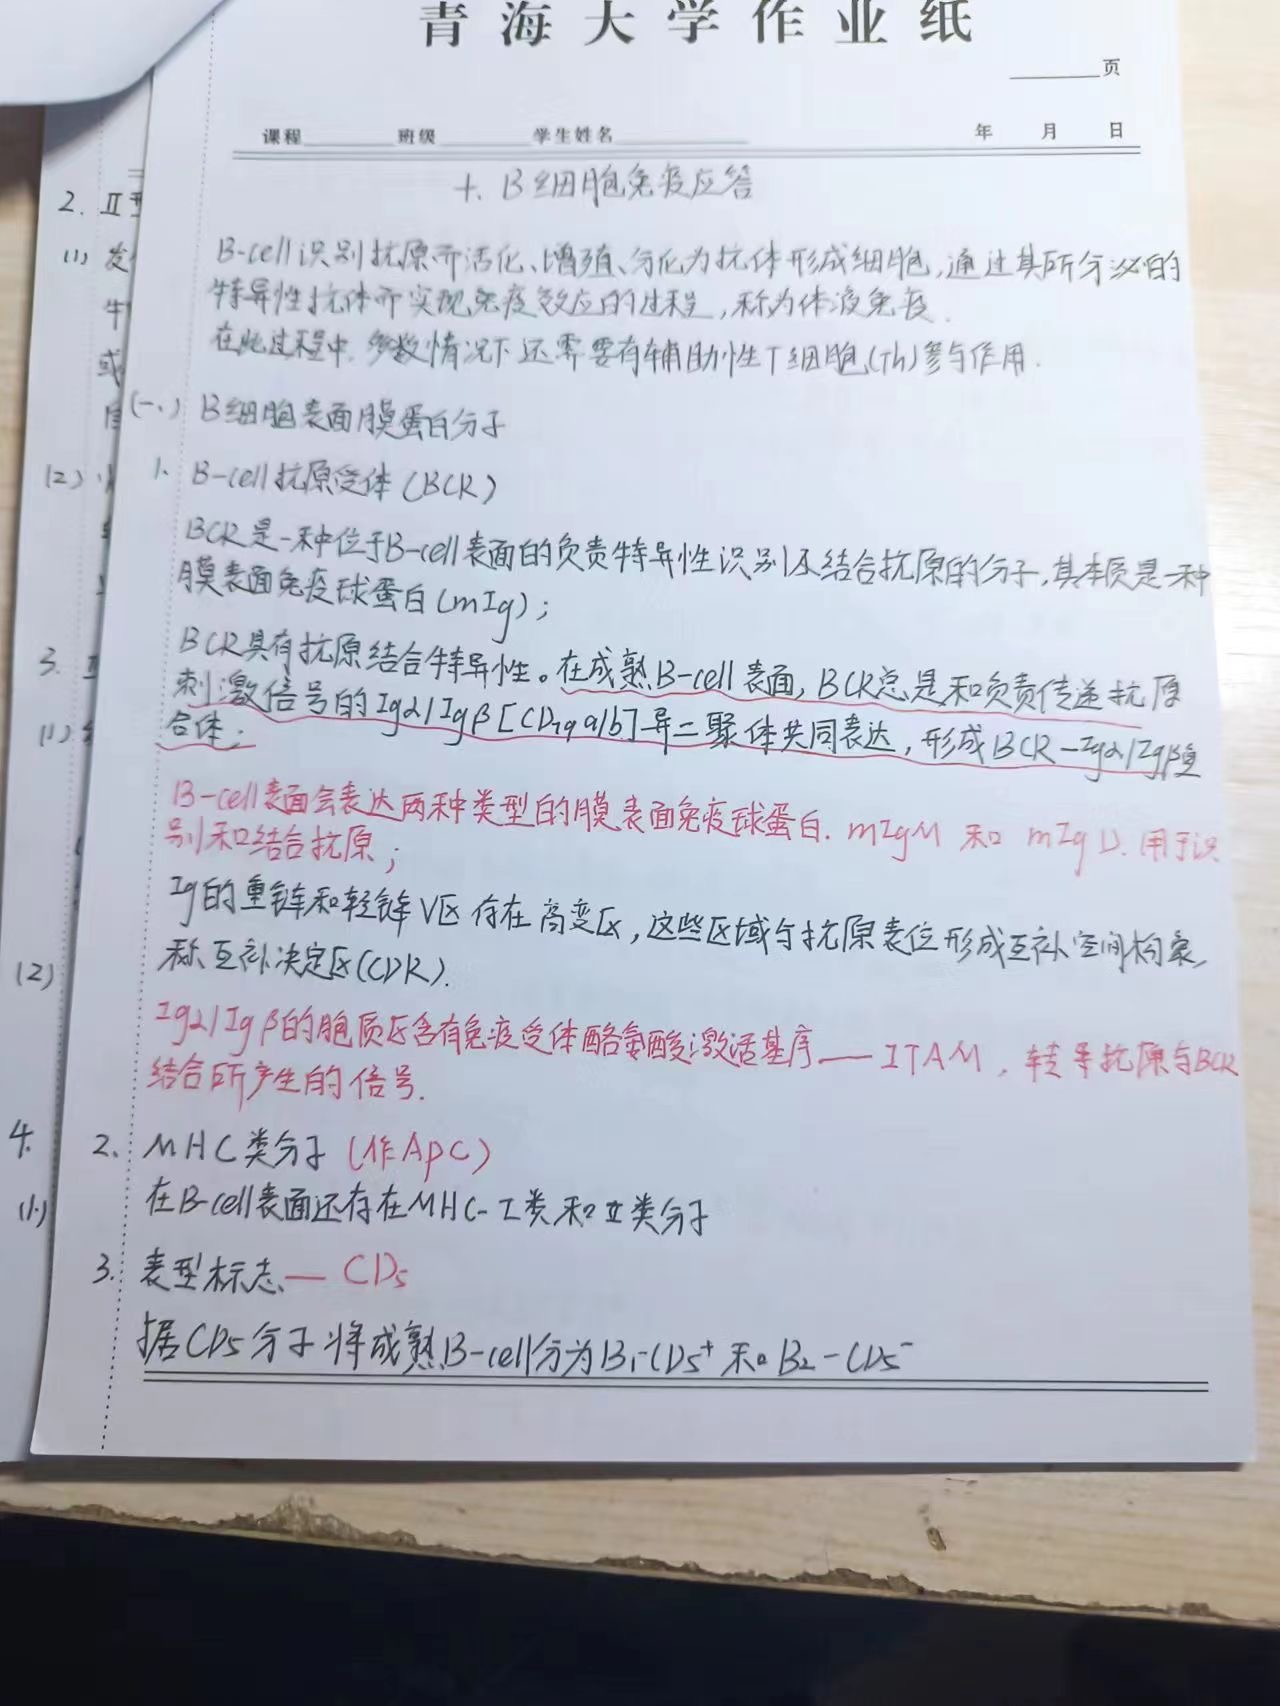 青海大学作业纸
页
课程 班级 学生姓名 年 月 日
十、B细胞免疫应答
B-cell识别抗原而活化、增殖、分化为抗体形成细胞,通过其所分泌的
特异性抗体而实现免疫效应的过程,称为体液免疫.
在此过程中,多数情况下还需要有辅助性T细胞(Th)参与作用.
(一、) B细胞表面膜蛋白分子
1、 B-cell抗原受体(BCR)
BCR是一种位于B-cell表面的负责特异性识别及结合抗原的分子,其本质是一种
膜表面免疫球蛋白(mIg);
BCR具有抗原结合特异性。在成熟B-cell表面,BCR总是和负责传递抗原
刺激信号的Igα/Igβ[CD79a/b]异二聚体共同表达,形成BCR-Igα/Igβ复
合体;
B-cell表面会表达两种类型的膜表面免疫球蛋白.mIgM 和 mIgD.用于识
别和结合抗原;
Ig的重链和轻链V区存在高变区,这些区域与抗原表位形成互补空间构象,
称互补决定区(CDR).
Igα/Igβ的胞质区含有免疫受体酪氨酸激活基序——ITAM,转导抗原与BCR
结合所产生的信号.
2、 MHC类分子(作APC)
在B-cell表面还存在MHC-I类和II类分子
3. 表型标志—CD5
据CD5分子将成熟B-cell分为B1-CD5⁺和B2-CD5⁻
2. II
(1) 发
或
(2)
3.
(1)
(2)
4.
(1)